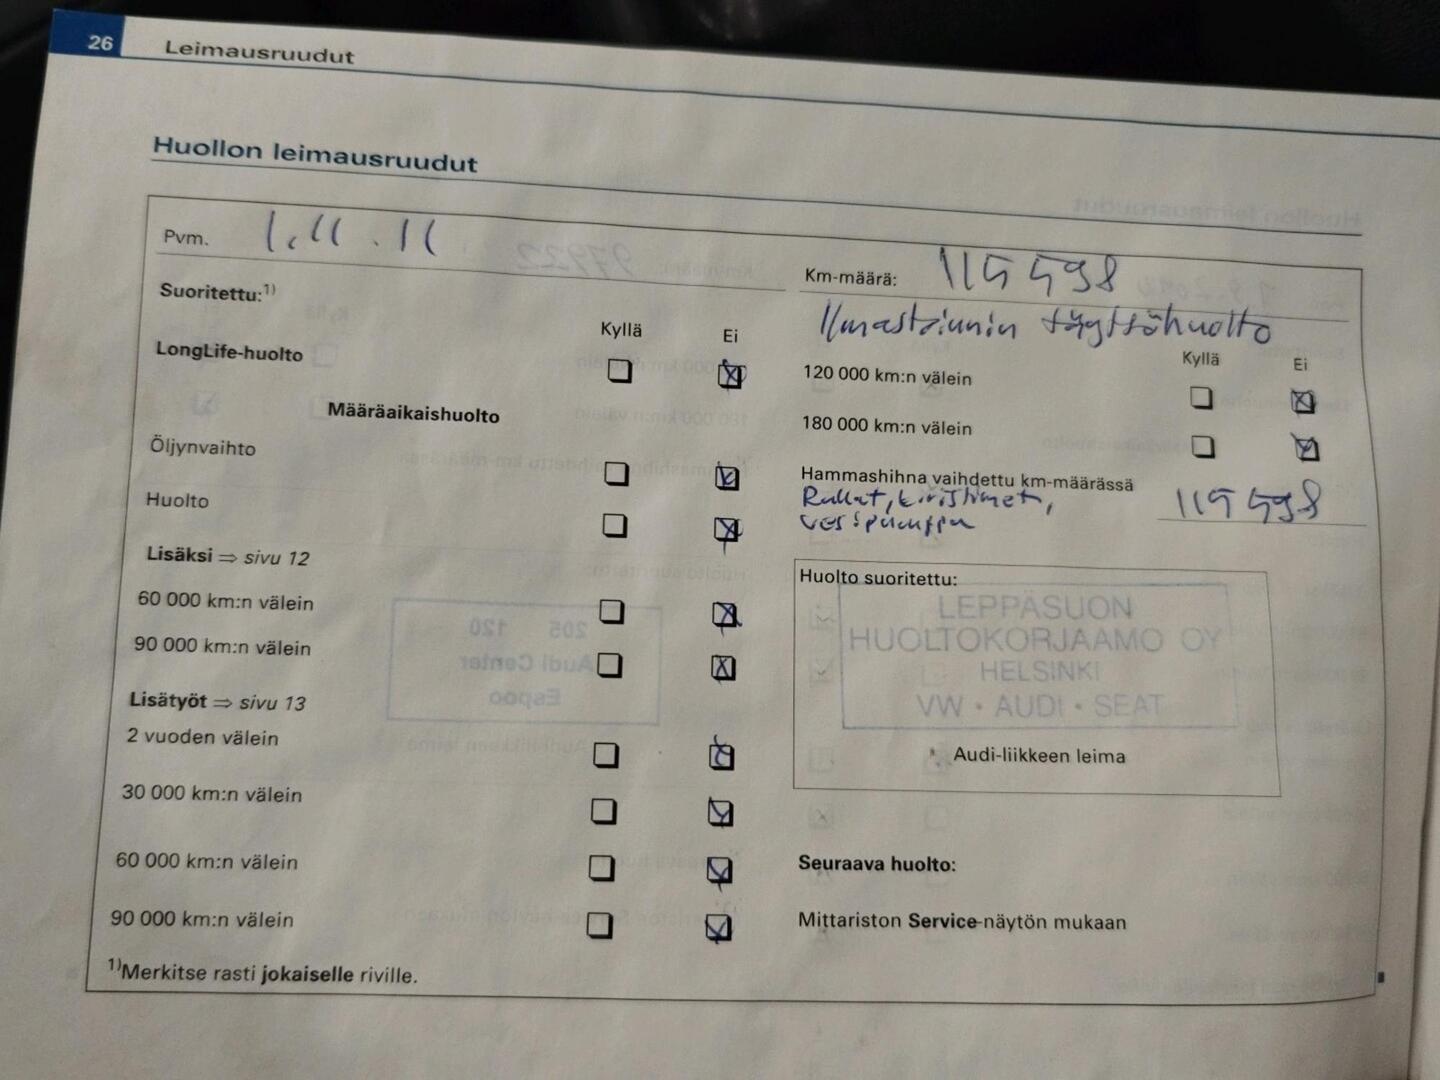 26 Leimausruudut
Huollon leimausruudut
Pvm. 1.11.11
Suoritettu:1)
Kyllä Ei
LongLife-huolto
Määräaikaishuolto
Öljynvaihto
Huolto
Lisäksi ⇒ sivu 12
60 000 km:n välein
90 000 km:n välein
Lisätyöt ⇒ sivu 13
2 vuoden välein
30 000 km:n välein
60 000 km:n välein
90 000 km:n välein
1)Merkitse rasti jokaiselle riville.
Km-määrä: 115598
Ilmastoinnin täyttöhuolto
Kyllä Ei
120 000 km:n välein
180 000 km:n välein
Hammashihna vaihdettu km-määrässä
Rullat, kiristimet, 115598
vesipumppu
Huolto suoritettu:
LEPPÄSUON
HUOLTOKORJAAMO OY
HELSINKI
VW · AUDI · SEAT
Audi-liikkeen leima
Seuraava huolto:
Mittariston Service-näytön mukaan